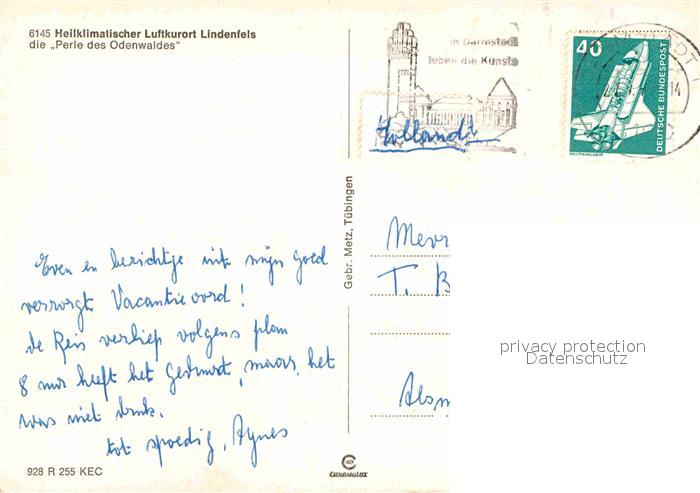 6145 Heilklimatischer Luftkurort Lindenfels
die „Perle des Odenwaldes"
in Darmstadt
leben die Künste
14
40
DEUTSCHE BUNDESPOST
WELTRAUMLABOR
Hollandt
Gebr. Metz, Tübingen
Mevr
T. B
Alsm
Even en berichtje uit mijn goed
verzorgt Vacantieoord!
de Reis verliep volgens plan
8 uur heeft het Geduurt, maar het
was niet druk.
tot spoedig, Agnes
privacy protection
Datenschutz
928 R 255 KEC
CHROMOLUX